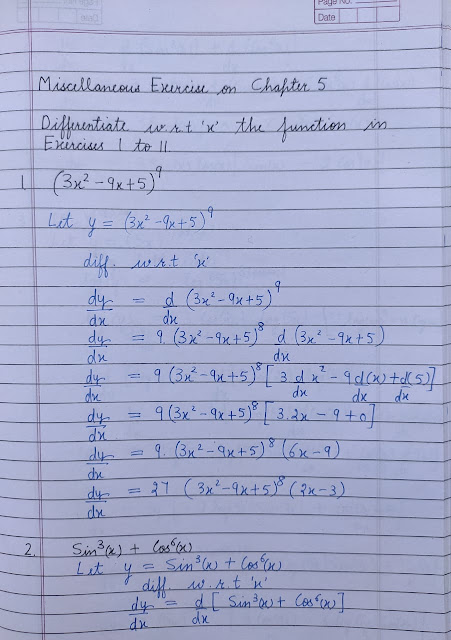 Page No.
Date
Miscellaneous Exercise on Chapter 5
Differentiate w.r.t 'x' the function in
Exercises 1 to 11.
1. (3x² - 9x + 5)⁹
Let y = (3x² - 9x + 5)⁹
diff. w.r.t 'x'
dy/dx = d/dx (3x² - 9x + 5)⁹
dy/dx = 9 (3x² - 9x + 5)⁸ d/dx (3x² - 9x + 5)
dy/dx = 9 (3x² - 9x + 5)⁸ [3 d/dx x² - 9 d/dx (x) + d/dx (5)]
dy/dx = 9 (3x² - 9x + 5)⁸ [3.2x - 9 + 0]
dy/dx = 9. (3x² - 9x + 5)⁸ (6x - 9)
dy/dx = 27 (3x² - 9x + 5)⁸ (2x - 3)
2. Sin³(x) + Cos⁶(x)
Let y = Sin³(x) + Cos⁶(x)
diff. w.r.t 'x'
dy/dx = d/dx [Sin³(x) + Cos⁶(x)]